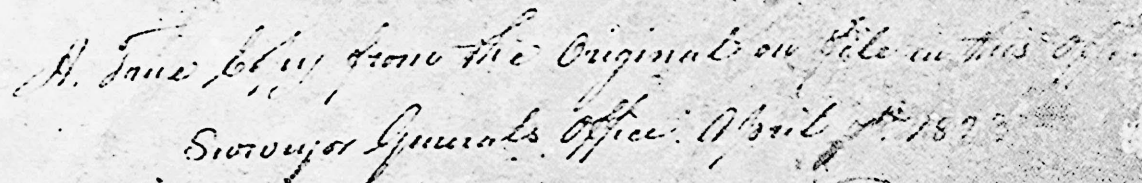 A. True Copy from the Original on file in this Office
Surveyor Generals Office. April 7th. 1823